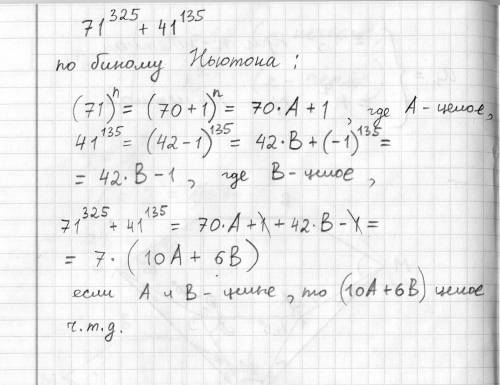 71^325 + 41^135
по биному Ньютона :
(71)^n = (70+1)^n = 70·A + 1 , где A - целое,
41^135 = (42-1)^135 = 42·B + (-1)^135 =
= 42·B - 1 , где B - целое ,
71^325 + 41^135 = 70·A + 1 + 42·B - 1 =
= 7 · (10A + 6B)
если A и B - целые , то (10A+6B) целое
ч.т.д.